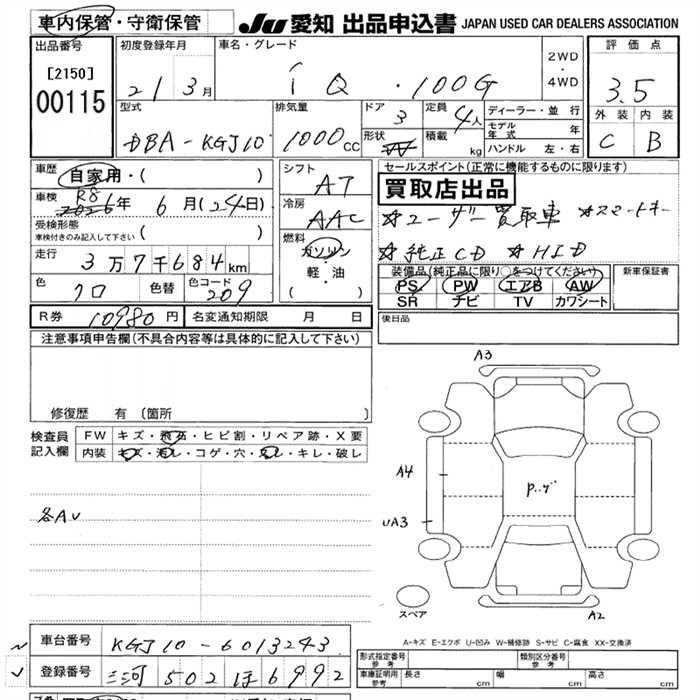 車内保管・守衛保管
JU 愛知 出品申込書 JAPAN USED CAR DEALERS ASSOCIATION
出品番号
[2150]
00115
初度登録年月
21 3月
車名・グレード
iQ ・100G
2WD
・
4WD
評価点
3.5
外装 内装
C B
型式
DBA-KGJ10
排気量
1000cc
ドア
3
形状
定員
4人
積載
kg
ディーラー・並行
モデル年式 年
ハンドル 左・右
車歴
自家用・( )
車検
R8
2026年 6月(24日)
受検形態
車検付きのみ記入して下さい ( )
走行
3万7千684km
色
クロ
色替
色コード
209
シフト
AT
冷房
AAC
燃料
ガソリン
軽・油
( )
セールスポイント(正常に機能するものに限ります)
買取店出品
☆ユーザー買取車 ☆スマートキー
☆純正CD ☆HID
装備品(純正品に限り○をつけてください)
PS PW エアB AW
SR ナビ TV カワシート
新車保証書
後日品
R券 10980円 名変通知期限 月 日
注意事項申告欄(不具合内容等は具体的に記入して下さい)
修復歴 有 〔箇所 〕
検査員
記入欄
FW キズ・飛石・ヒビ割・リペア跡・X要
内装 キズ・汚レ・コゲ・穴・スレ・キレ・破レ
各AU
A3
A4
UA3
A2
スペア
A-キズ E-エクボ U-凹み W-補修跡 S-サビ C-腐食 XX-交換済
車台番号 KGJ10-6013243
登録番号 三河 502 ほ 6992
形式指定番号
参考
類別区分番号
参考
車庫証明用
参考
長さ cm 幅 cm 高さ cm